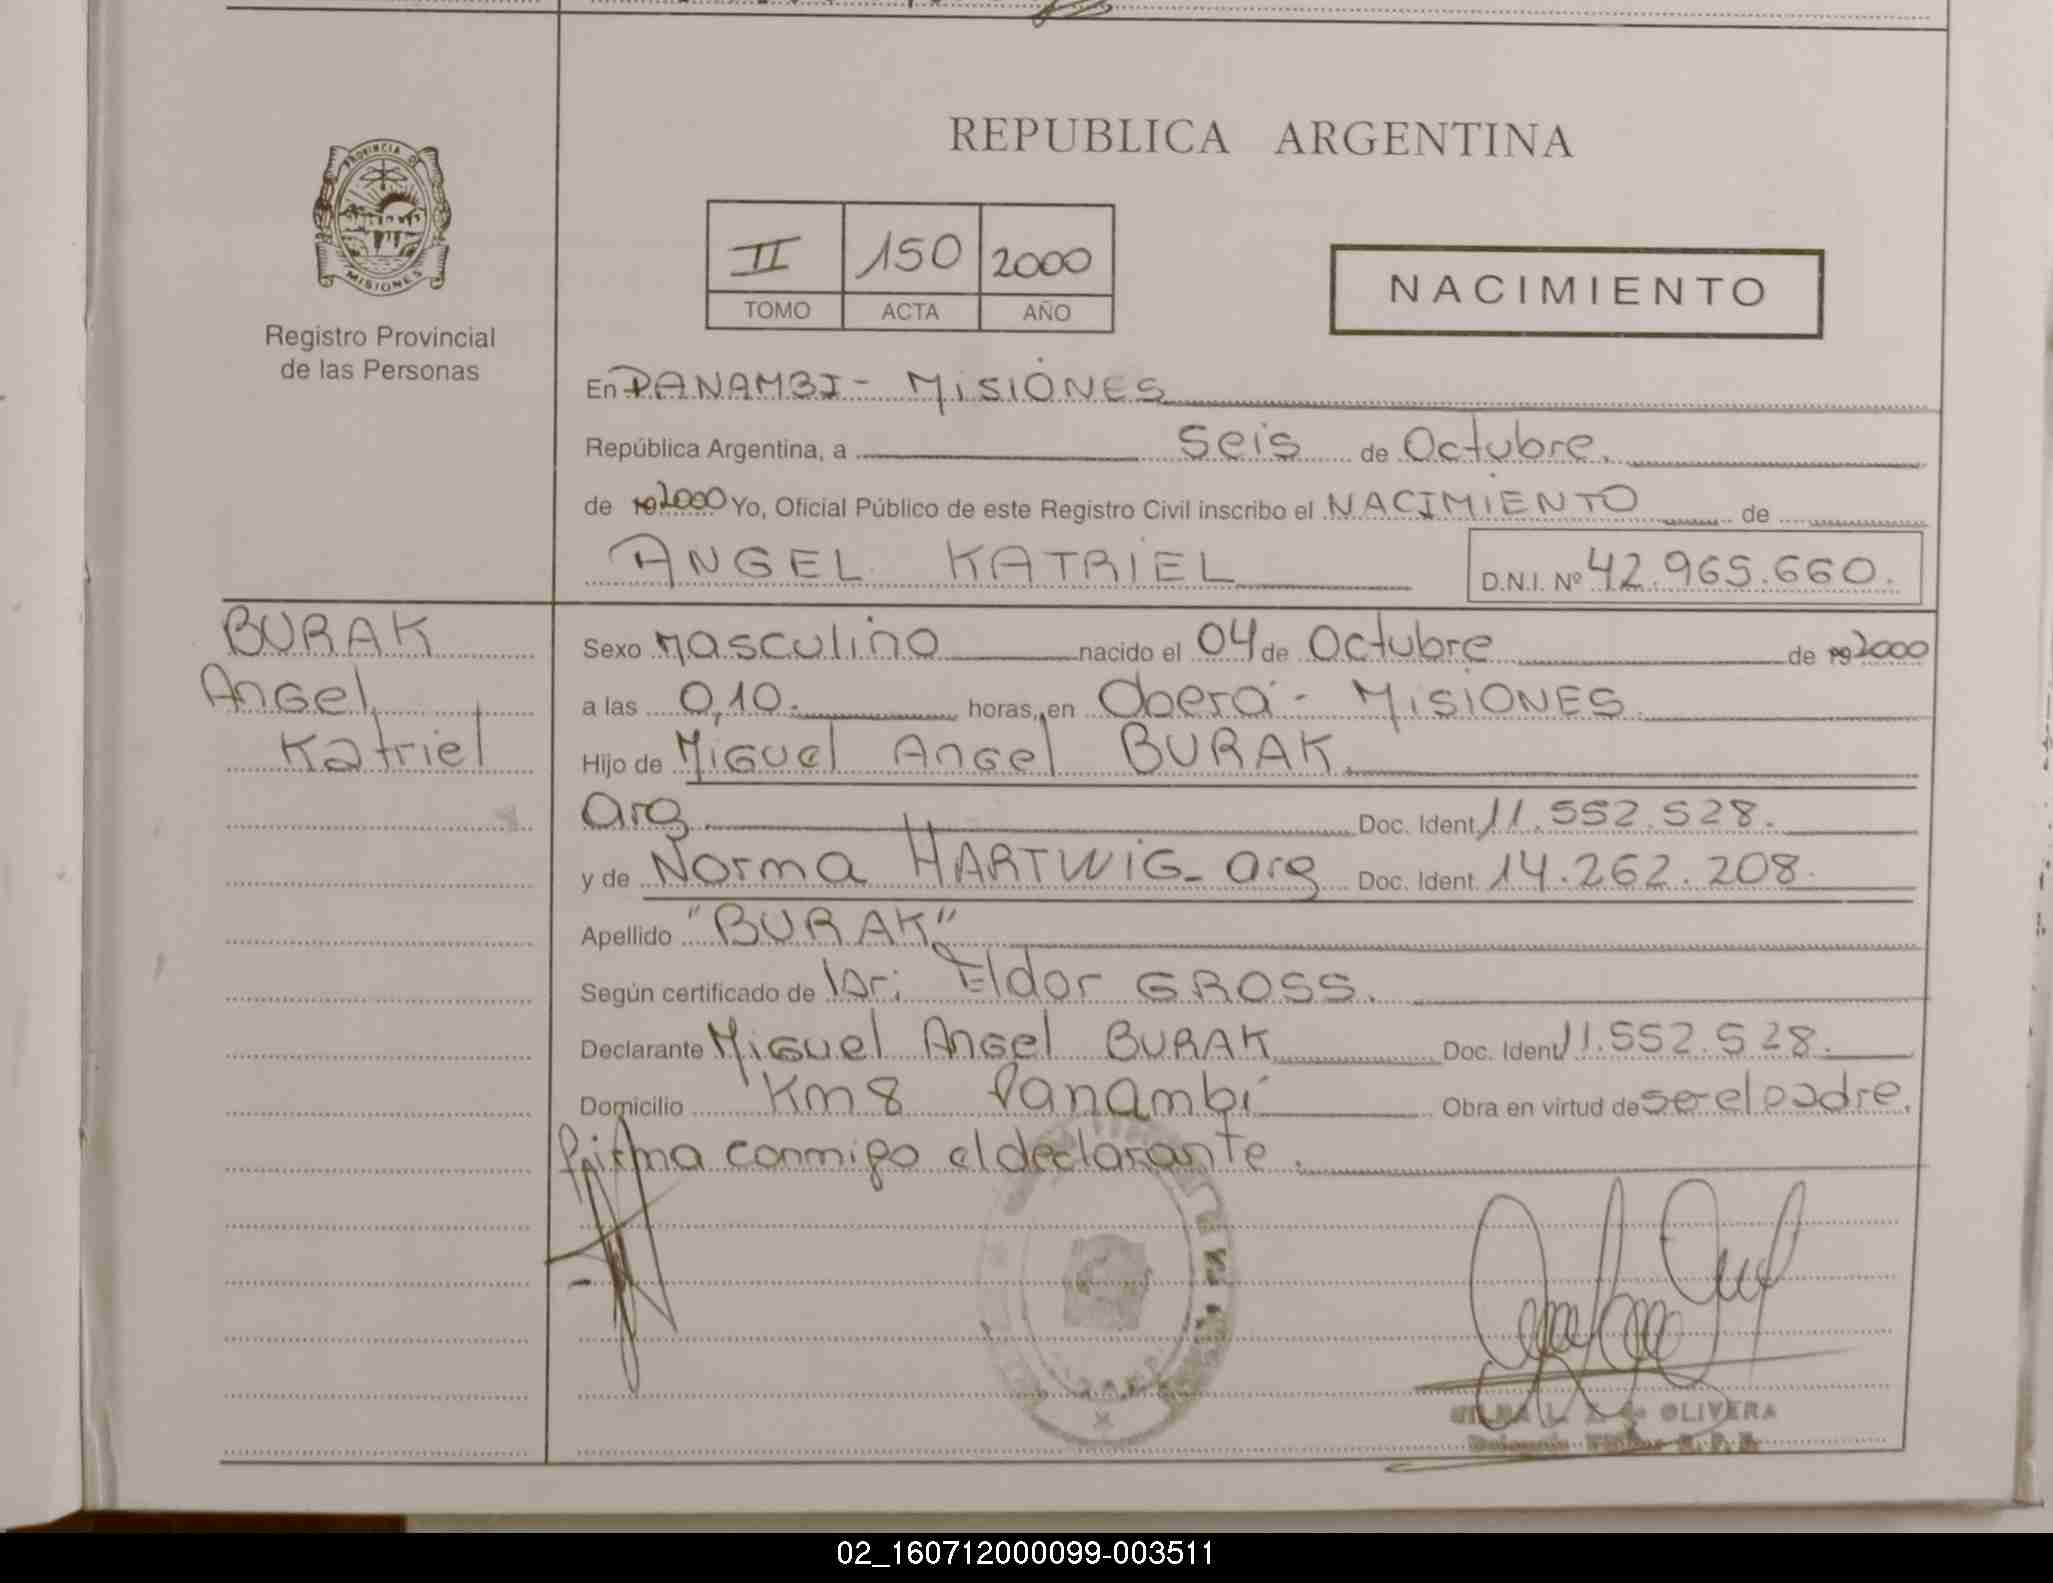 PROVINCIA DE
MISIONES
Registro Provincial
de las Personas
REPUBLICA ARGENTINA
II 150 2000
TOMO ACTA AÑO
NACIMIENTO
En PANAMBI - MISIONES
República Argentina, a seis de Octubre.
de 19 2000 Yo, Oficial Público de este Registro Civil inscribo el NACIMIENTO de
ANGEL KATRIEL D.N.I. Nº 42.965.660.
BURAK
Angel
Katriel
Sexo Masculino nacido el 04 de Octubre de 19 2000
a las 0,10. horas, en Oberá - MISIONES
Hijo de Miguel Angel BURAK
arg Doc. Ident. 11.552.528.
y de Norma HARTWIG - arg Doc. Ident. 14.262.208.
Apellido "BURAK"
Según certificado de Dr: Eldor GROSS.
Declarante Miguel Angel BURAK Doc. Ident. 11.552.528.
Domicilio Km 8 Panambí Obra en virtud de ser el padre.
firma conmigo el declarante.
OLIVERA
02_160712000099-003511